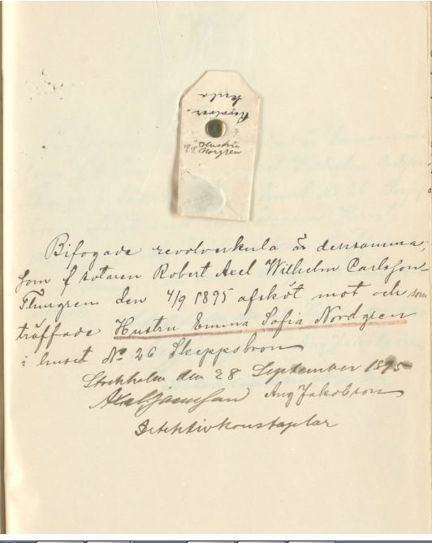 Revolver-
kula
Hustru
Norgren
Bifogade revolverkula är densamma,
som f sotaren Robert Axel Wilhelm Carlsson-
den 4/9 1895 afsköt mot och som
träffade Hustru Emma Sofia Nordgren
i huset No 26 Skeppsbron
Stockholm den 28 September 1895
Aug Jakobson
Detektivkonstaplar